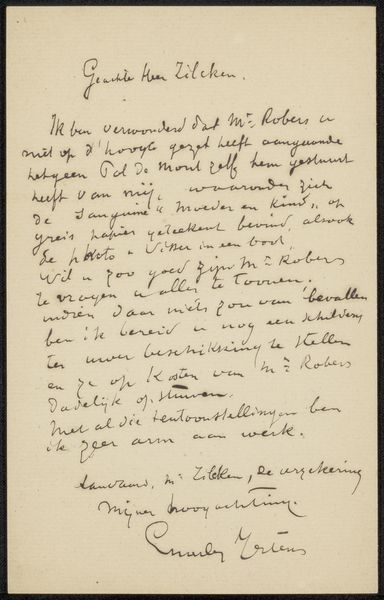 Geachte Heer Zilcken.
Ik ben verwonderd dat Mr. Robers u
niet op d'hoogte gezet heeft aangaande
hetgeen Pol de Mont zelf hem gestuurt
heeft van mij, waaronder zich
de Sanguine "Moeder en Kind" op
greis papier geteekent bevind, alsook
de photo "Visser in een boot".
Wil u zoo goed zijn Mr. Robers
te vragen u alles te toonen.
indien daar niets zou van bevallen
ben ik bereid u nog een schilderij
ter uwer beschikking te stellen
en ze op kosten van Mr. Robers
dadelijk op sturen.
Met al die tentoonstellingen ben
ik zeer arm aan werk.
Aanvaard, mr Zilcken, de verzekering
mijner hoogachting.
Charles Mertens